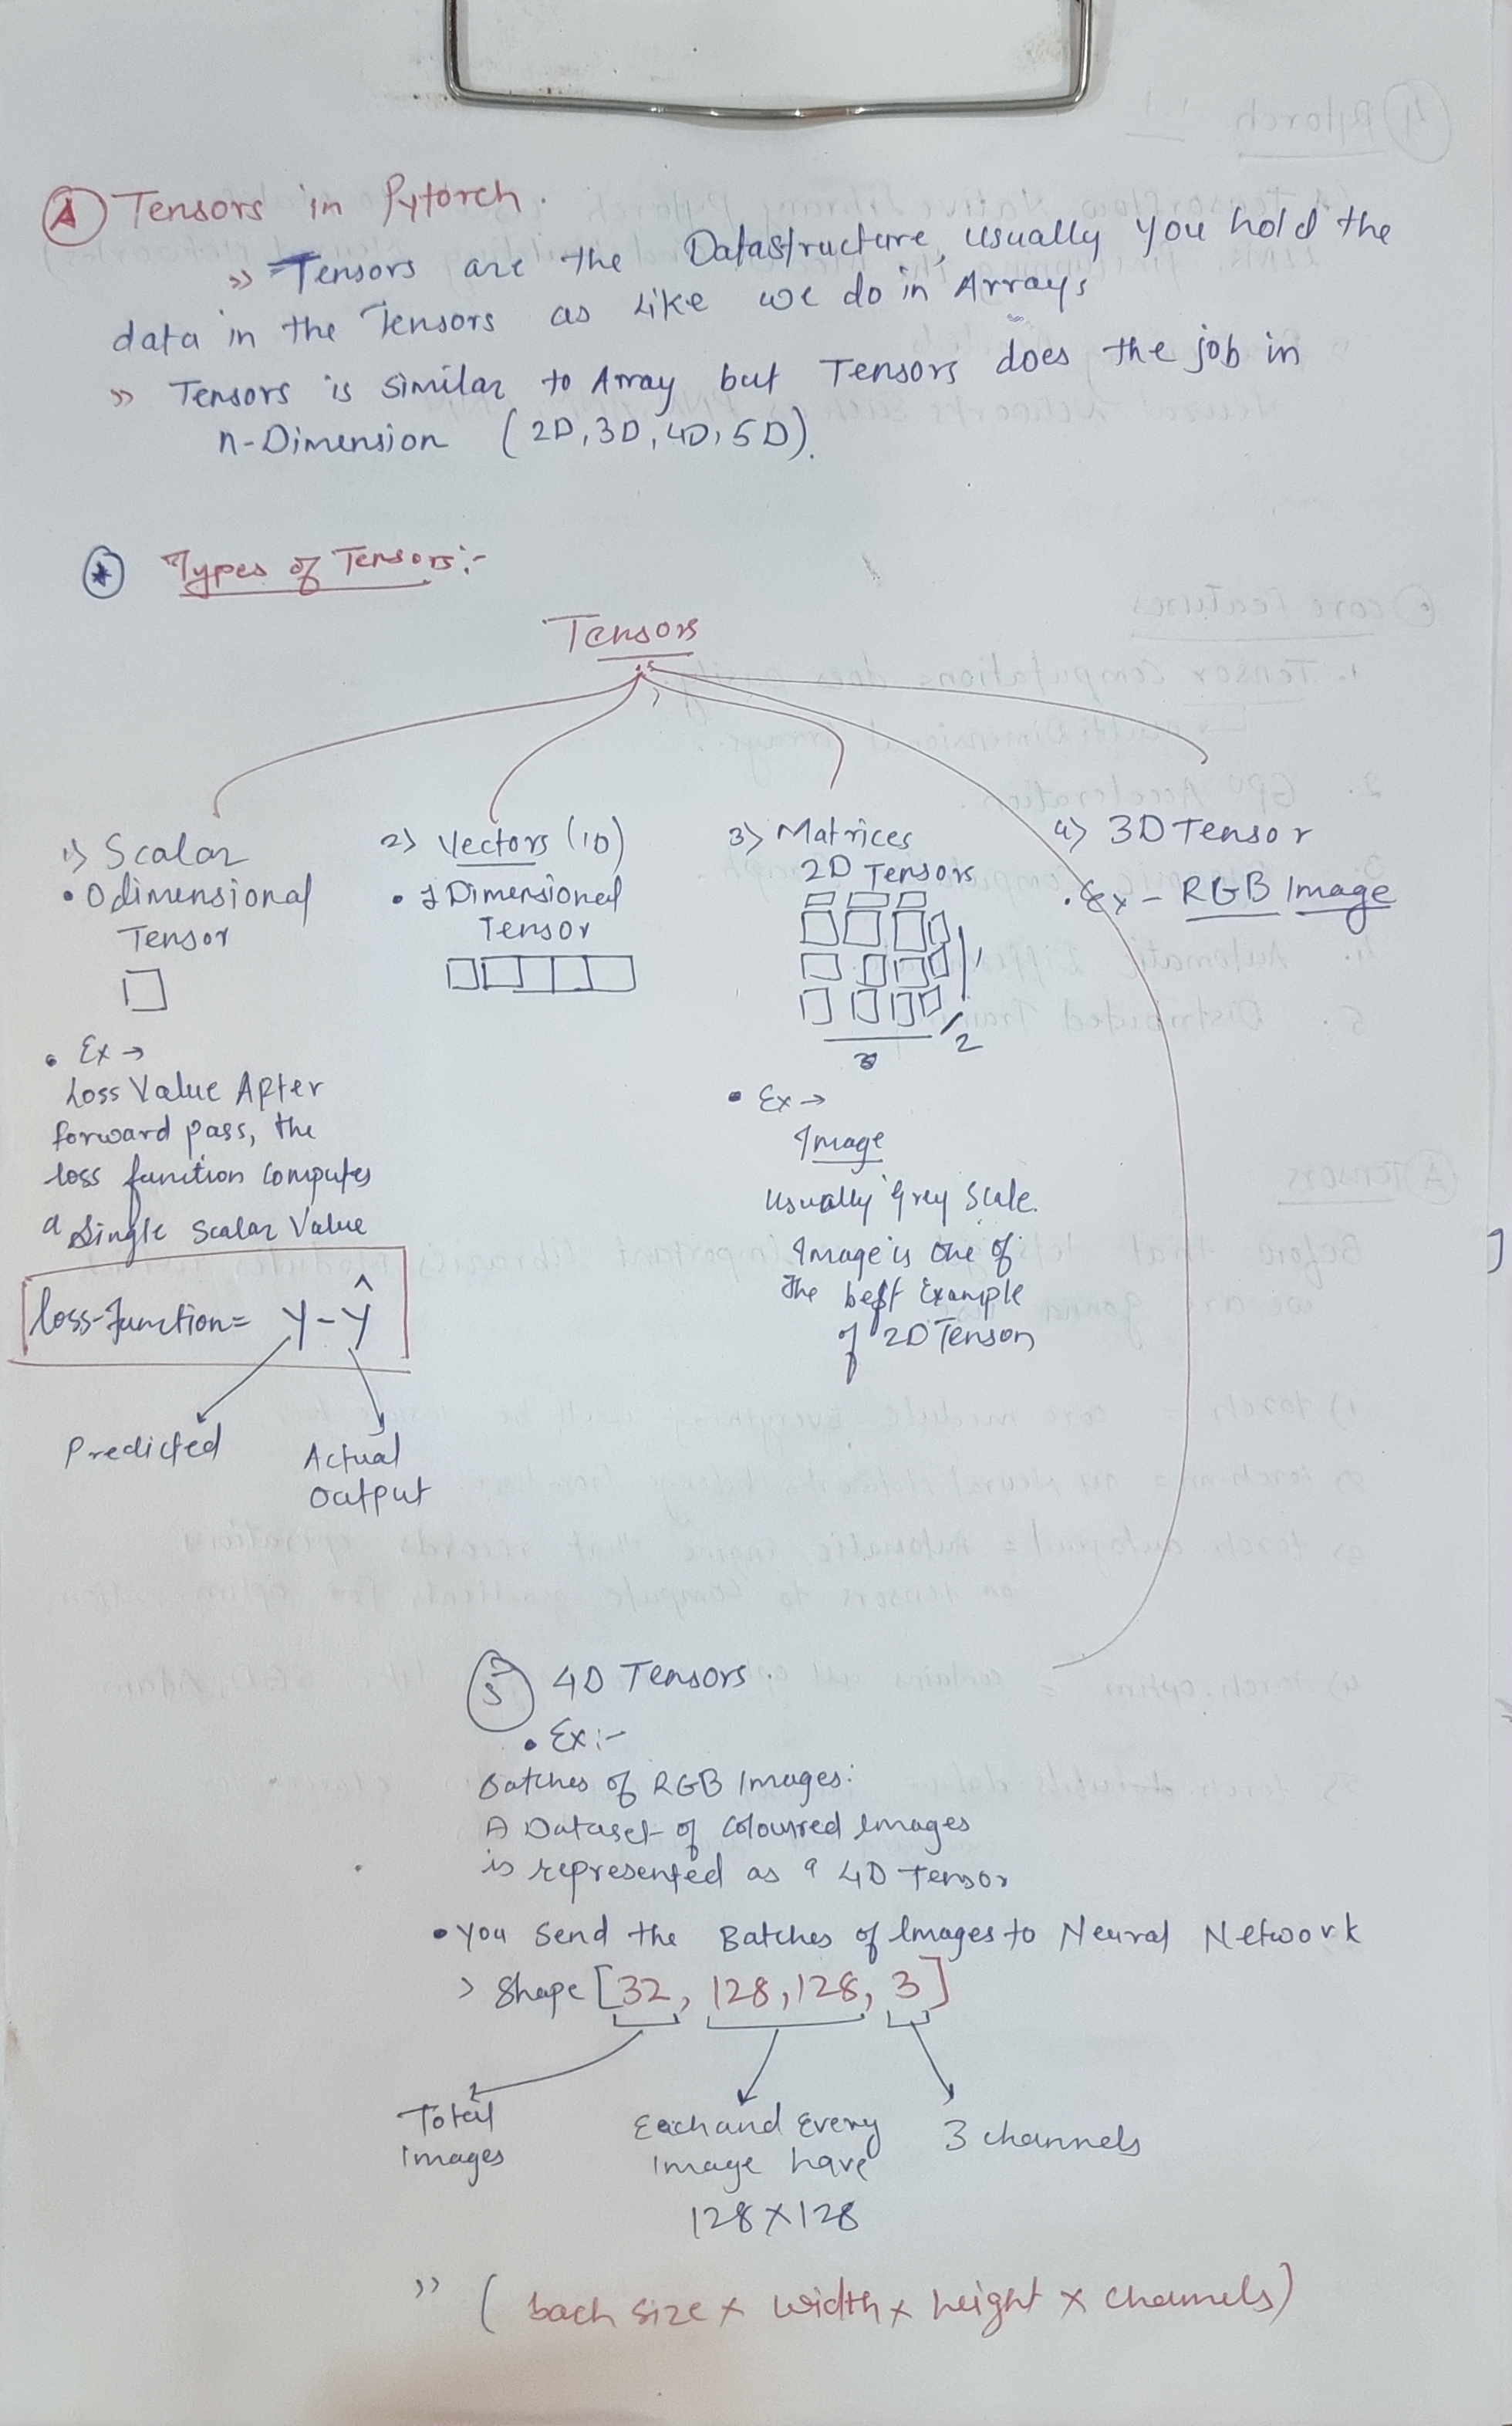 A Tensors in Pytorch.
>> Tensors are the Datastructure, usually you hold the
data in the Tensors as like we do in Arrays
>> Tensors is similar to Array but Tensors does the job in
n-Dimension (2D, 3D, 4D, 5D).
* Types of Tensors:-
Tensors
1) Scalar
• 0 dimensional
Tensor
• Ex →
Loss Value After
forward pass, the
loss function computes
a Single Scalar Value
loss-function = y - ŷ
Predicted
Actual
Output
2) Vectors (1D)
• 1 Dimensional
Tensor
3) Matrices
2D Tensors
1
2
3
• Ex →
Image
Usually Grey Scale.
Image is one of
the best Example
of 2D Tensor
4) 3D Tensor
• Ex - RGB Image
5 4D Tensors.
• Ex:-
Batches of RGB Images:
A Dataset of Coloured Images
is represented as a 4D Tensor
• You Send the Batches of Images to Neural Network
> Shape [32, 128, 128, 3]
Total
Images
Each and Every
Image have
128 x 128
3 channels
>> (bach size x width x height x channels)